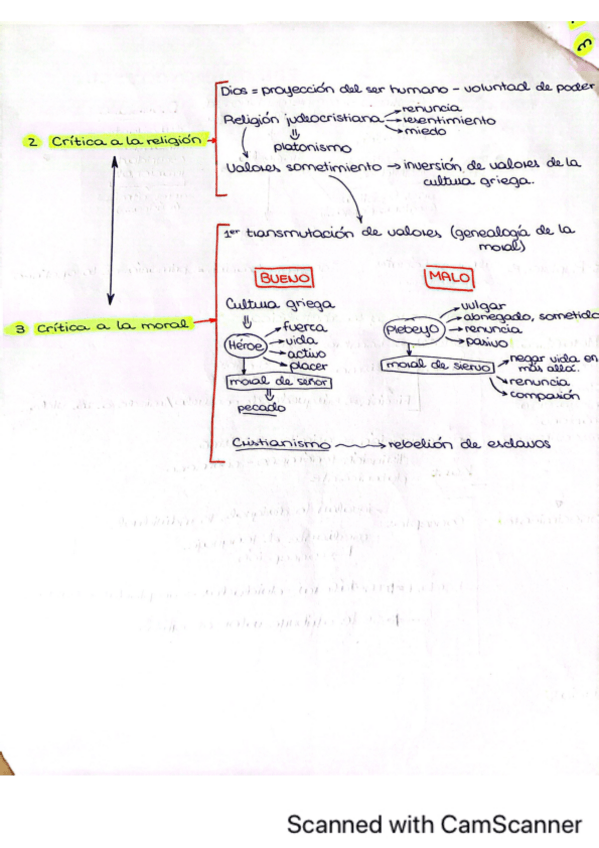 3
Dios = proyección del ser humano - voluntad de poder
2 Crítica a la religión → Religión judeocristiana → renuncia
→ resentimiento
→ miedo
⇓
platonismo
Valores sometimiento → inversión de valores de la
cultura griega.
1er transmutación de valores (genealogía de la
moral)
BUENO
MALO
3 Crítica a la moral →
Cultura griega
⇓
Héroe → fuerca
→ vida
→ activo
→ placer
moral de señor
⇓
pecado
Plebeyo → vulgar
→ abnegado, sometido
→ renuncia
→ pasivo
moral de siervo → negar vida en
más allá.
→ renuncia
→ compasión
Cristianismo → rebelión de esclavos
Scanned with CamScanner